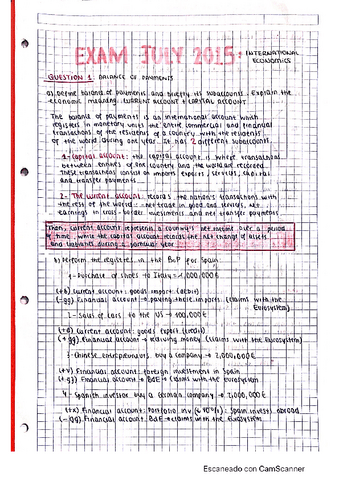 EXAM JULY 2015: INTERNATIONAL
ECONOMICS
QUESTION 1. BALANCE OF PAYMENTS
a) Define balance of payments and briefly its subaccounts. Explain the
economic meaning. CURRENT ACCOUNT & CAPITAL ACCOUNT
The balance of payments is an international account which
registers in monetary units the entire commercial and financial
transactions of the residents of a country with the residents
of the world during one year. It has 2 different subaccounts.
1- Capital account: this capital account is where transactions
between entities of one country and the world are recorded.
These transactions consist on imports exports, services, capital
and transfer payments.
2- The current account: records the nation's transactions with
the rest of the world: net trade in good and services, net
earnings in cross-border investments and net transfer payments
Then, current account represents a country's net income over a period
of time, while the capital account records the net change of assets
and liabilities during a particular year
b) Perform the registries in the BoP for Spain
1- Purchase of shoes to Italy = 1,000,000€
Current account: goods import (debit)
Financial account → paying these imports (claims with the
Eurosystem)
2- Sales of cars to the US → 100,000€
Current account: goods export (credit)
Financial account → receiving money (claims with the Eurosystem)
3- Chinese entrepreneurs buy a company → 2,000,000€
Financial account: foreign investment in Spain
Financial account → BdE → claims with the Eurosystem
4- Spanish investor buy a German company → 2,000,000€
Financial account: Portfolio inv : Spain invests abroad
Financial account: BdE → claims with the Eurosystem
Escaneado con CamScanner